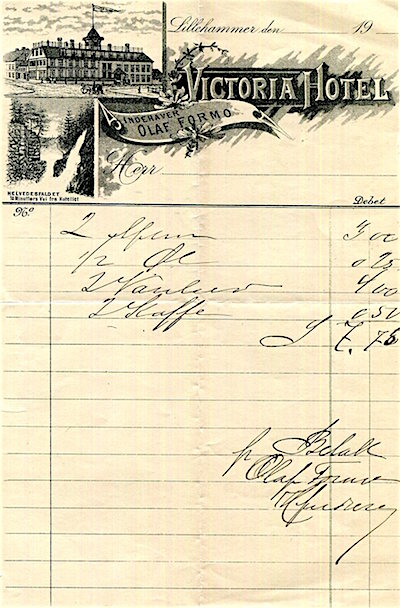 Lillehammer den 19
VICTORIA HOTEL
INDEHAVER
OLAF FORMO
Herr
HELVEDESFALDET
10 Minutters Vei fra Hotellet
Debet
No
2 3 00
1/2 Øl 0 25
2 4 00
2 Kaffe 0 50
7.75
Betalt
Olaf Formo